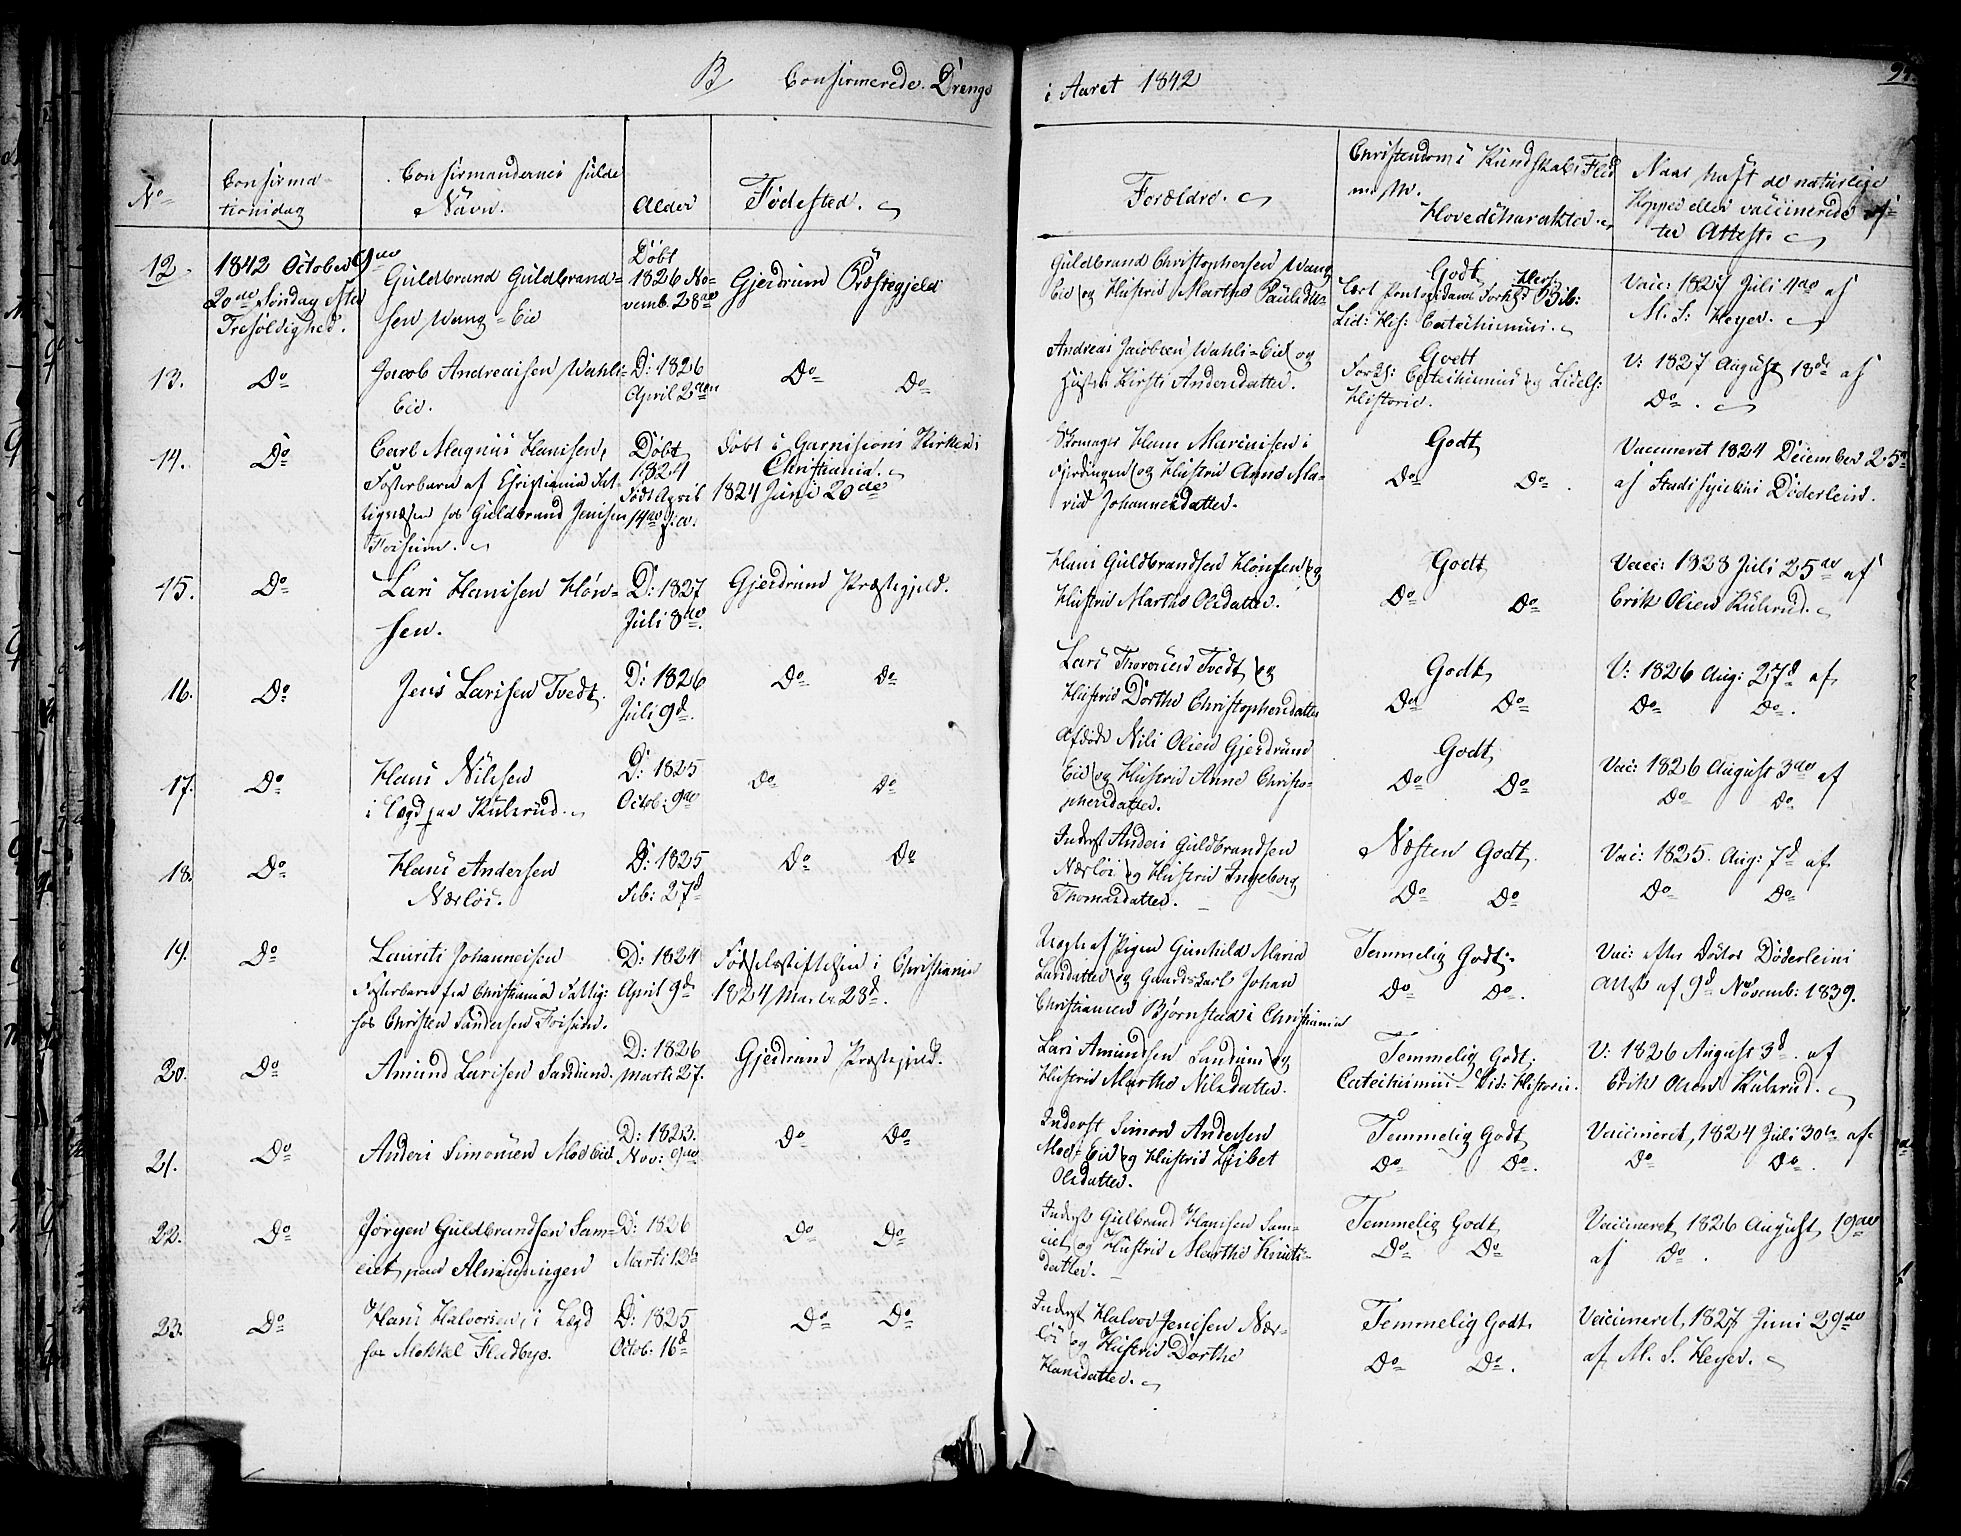 B Confirmerede Drenge
i Aaret 1842
No
Confirma-
tionsdag
Confirmandernes fulde
Navn.
Alder
Fødested.
Forældre.
Christendoms Kundskab, Flid
m. m.
Hovedcharakter.
Naar haft de naturlige
Kopper eller vaccinerede ef-
ter Attest.
12.
1842 October 9de
20de Søndag efter
Trefoldighed.
Guldbrand Guldbrand-
sen Wang-Eie
Døbt
1826 No-
vemb. 28de
Gjerdrum Præstegjeld
Guldbrand Christophersen Wang
Eie og Hustrue Marthe Paulsda
Godt
Lært Pontoppidans Forkl: Bib:
Lid: His: Catechismus.
Vacc: 1827 Juli 4de af
M. S: Heyer.
13.
Do
Jacob Andreassen Wahls-
Eie.
D: 1826
April 2den
Do Do
Andreas Jacobsen Wahls-Eie og
Hustru Kirsti Andersdatter.
Godt
Fork: Catechismus og Lidels:
Historie.
V: 1827 August 18de af
Do.
14.
Do
Carl Magnus Hansen,
Fosterbarn af Christiania Fat-
tigvæsen hos Guldbrand Jensen
Forsum.
Døbt
1824
Født April
14de
Døbt i Garnisions Kirken i
Christiania.
1824 Juni 20de
Skomager Hans Marinisen i
Fjerdingen og Hustrue Anne Ma-
rie Johannesdatter.
Godt
Do Do.
Vaccineret 1824 December 25
af Stadsfysicus Døderlein.
15.
Do
Lars Hansen Høn-
sen.
D: 1827
Juli 8de.
Gjerdrum Præstegjeld.
Hans Guldbrandsen Hønsen og
Hustrue Marthe Olsdatter.
Godt
Do Do
Vacc: 1828 Juli 25de af
Erik Olsen Kulsrud.
16.
Do
Jens Larsen Tvedt.
D: 1826
Juli 9d.
Do Do
Lars Thoresen Tvedt og
Hustrue Dorthe Christophersdatter
Godt
Do Do
V: 1826 Aug: 27d af
Do Do.
17.
Do
Hans Nilsen
i Lægd paa Kulsrud.
D: 1825
Octob: 9de
Do Do
Afdøde Nils Olsen Gjerdrum
Eie og Hustrue Anne Christo-
phersdatter.
Godt
Do Do
Vac: 1826 August 3de af
Do Do
18.
Do
Hans Andersen
Nærløs.
D: 1825
Feb: 27d
Do Do
Inderst Anders Guldbrandsen
Nærløs og Hustrue Ingeborg
Thomasdatter.
Næsten Godt
Do Do
Vac: 1825. Aug: 7d af
Do Do
19.
Do
Laurits Johannesen
Fosterbarn fra Christiania Fattig:
hos Christen Sandersen Forsum.
D: 1824
April 9d
Fødselsstiftelsen i Christiania
1824 Marts 28d.
Uægte af Pigen Gunhild Maria
Larsdatter og Gaardskarl Johan
Christiansen Bjørnstad i Christiania
Temmelig Godt.
Do Do.
Vac: efter Doctor Døderleins
Attest af 9d Novemb: 1839.
20.
Do
Amund Larsen Sandum.
D: 1826
Marts 27.
Gjerdrum Præstegjeld.
Lars Amundsen Sandum og
Hustrue Marthe Nilsdatter.
Temmelig Godt.
Catechismus - Lid: Historie.
V: 1826 August 3d. af
Erik Olsen Kulsrud.
21.
Do
Anders Simonsen Moe Eiet
D: 1823.
Nov: 9de
Do Do
Inderst Simon Andersen
Moe-Eie og Hustrue Lisbet
Olsdatter.
Temmelig Godt
Do Do.
Vaccineret, 1824 Juli 30te af
Do Do.
22.
Do
Jørgen Guldbrandsen Sam-
eiet paa Almindingen
D: 1826
Marts 12te
Do Do
Inderst Gulbrand Hansen Sam-
eiet og Hustrue Marthe Knuts-
datter.
Temmelig Godt
Do Do
Vaccineret, 1826 August 19de
af Do.
23.
Do
Hans Halvorsen, i Lægd
hos Mekkel Fladbye.
D: 1825
Octob: 16d
Do Do
Inderst Halvor Jensen Nær-
løs og Hustrue Dorthe
Hansdatter.
Temmelig Godt.
Do Do.
Vaccineret, 1827 Juni 29de
af M. S. Heyer.